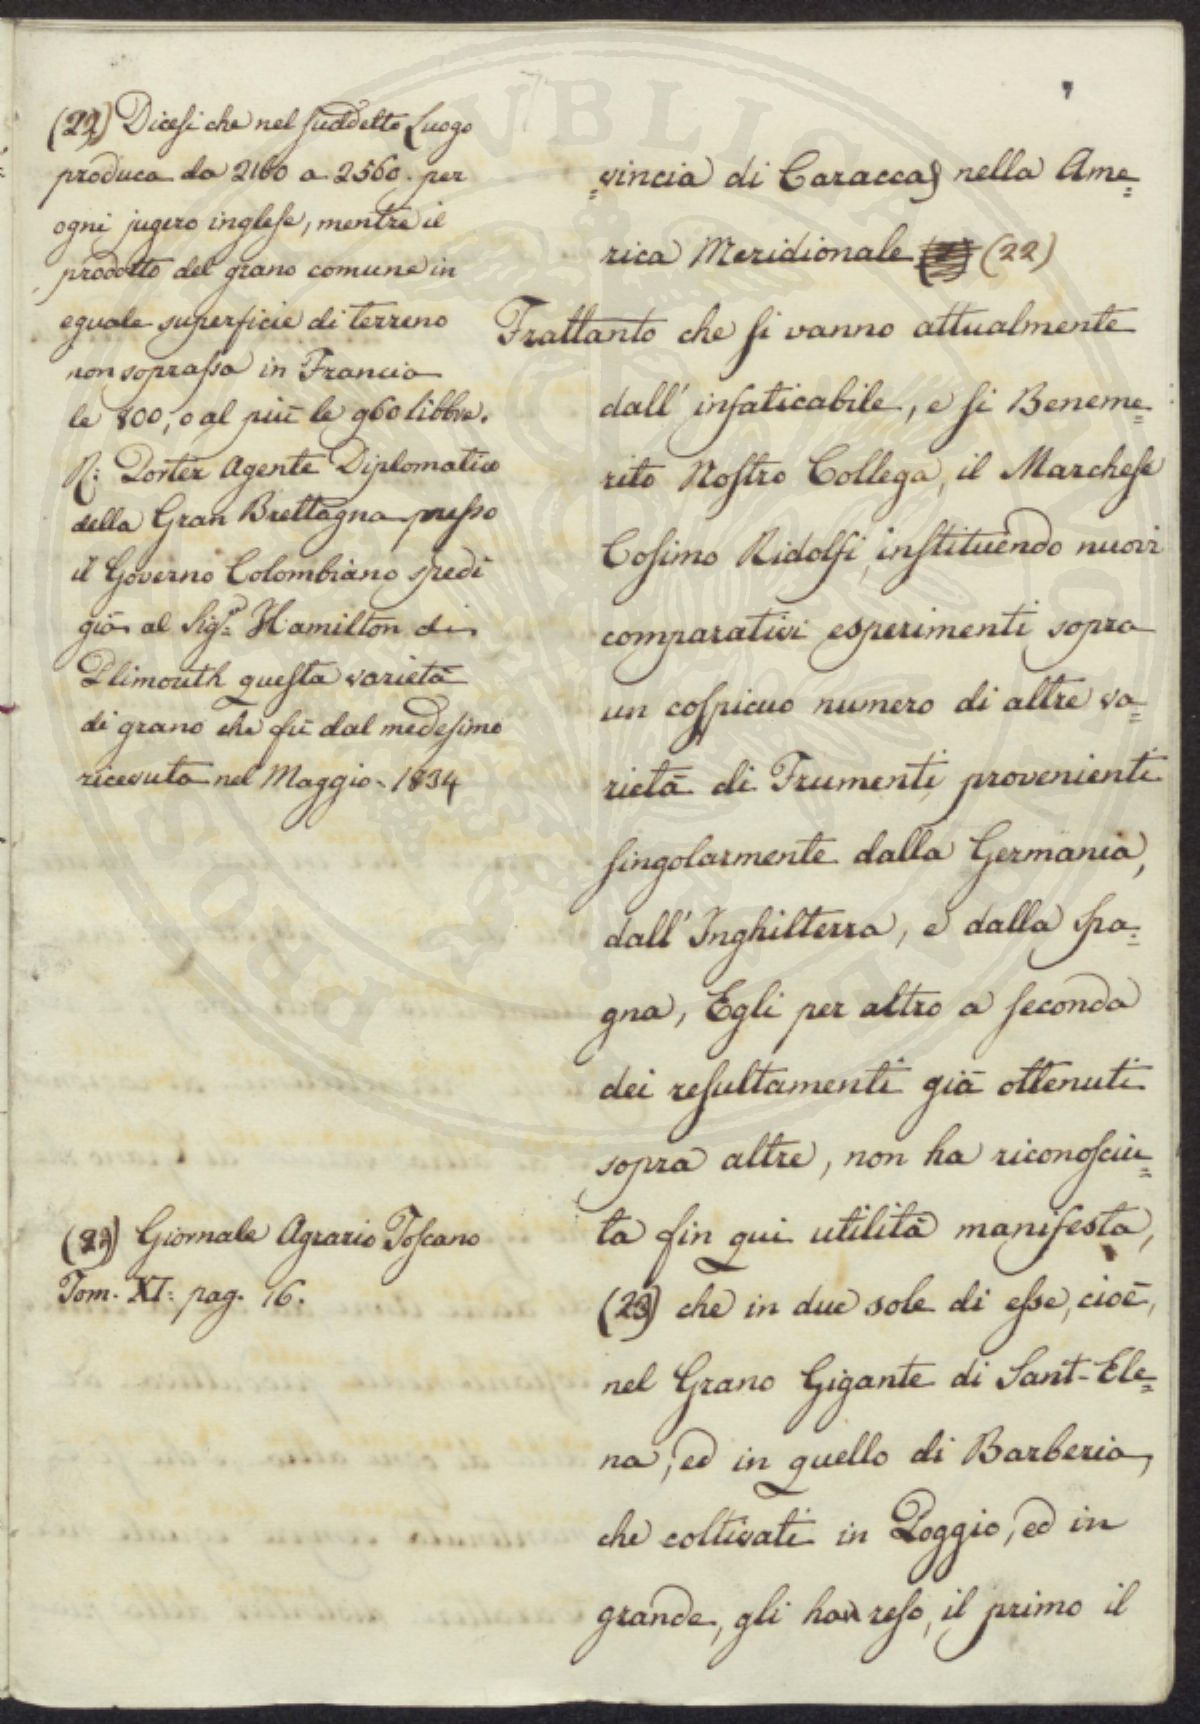 7
(22) Dicesi che nel suddetto Luogo
produca da 2160 a 2560. per
ogni jugero inglese, mentre il
prodotto del grano comune in
eguale superficie di terreno
non soprassa in Francia
le 800, o al più le 960 libbre.
R: Porter Agente Diplomatico
della Gran Brettagna presso
il Governo Colombiano spedì
già al Sigr. Hamilton di
Plimouth questa varietà
di grano che fù dal medesimo
ricevuta nel Maggio 1834
(23) Giornale Agrario Toscano
Tom. XI: pag. 16.
=vincia di Caraccas nella Ame=
rica Meridionale (22)
Frattanto che si vanno attualmente
dall' infaticabile, e sì Beneme=
rito Nostro Collega, il Marchese
Cosimo Ridolfi, instituendo nuovi
comparativi esperimenti sopra
un cospicuo numero di altre va=
rietà di Frumenti provenienti
singolarmente dalla Germania,
dall' Inghilterra, e dalla Spa=
gna, Egli per altro a seconda
dei resultamenti già ottenuti
sopra altre, non ha riconosciu=
ta fin qui utilità manifesta,
(23) che in due sole di esse, cioè,
nel Grano Gigante di Sant-Ele=
na, ed in quello di Barberia,
che coltivati in Poggio, ed in
grande, gli han reso, il primo il